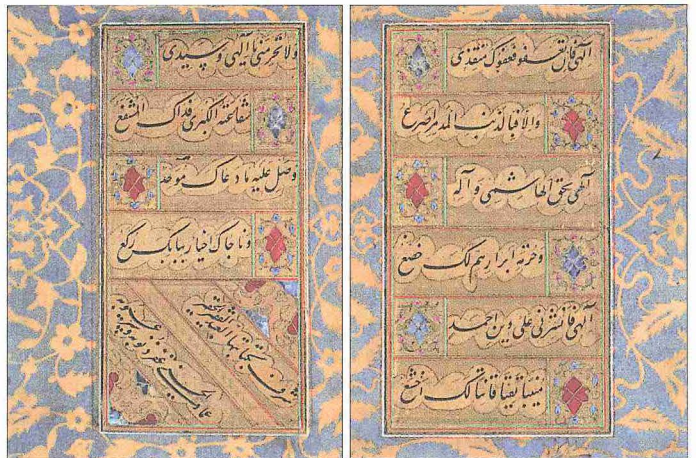 الهی فان تعفو فعفوک منقذی
والا فبالذنب المدمر اصرع
الهی بحق الهاشمی وآله
وحرمة ابرارهم لک خضع
الهی فانشرنی علی دین احمد
منیبا تقیا قانتا لک اخشع
ولا تحرمنی یا الهی وسیدی
شفاعته الکبری فذاک المشفع
وصل علیه ما دعاک موحد
وناجاک اخیار ببابک رکع